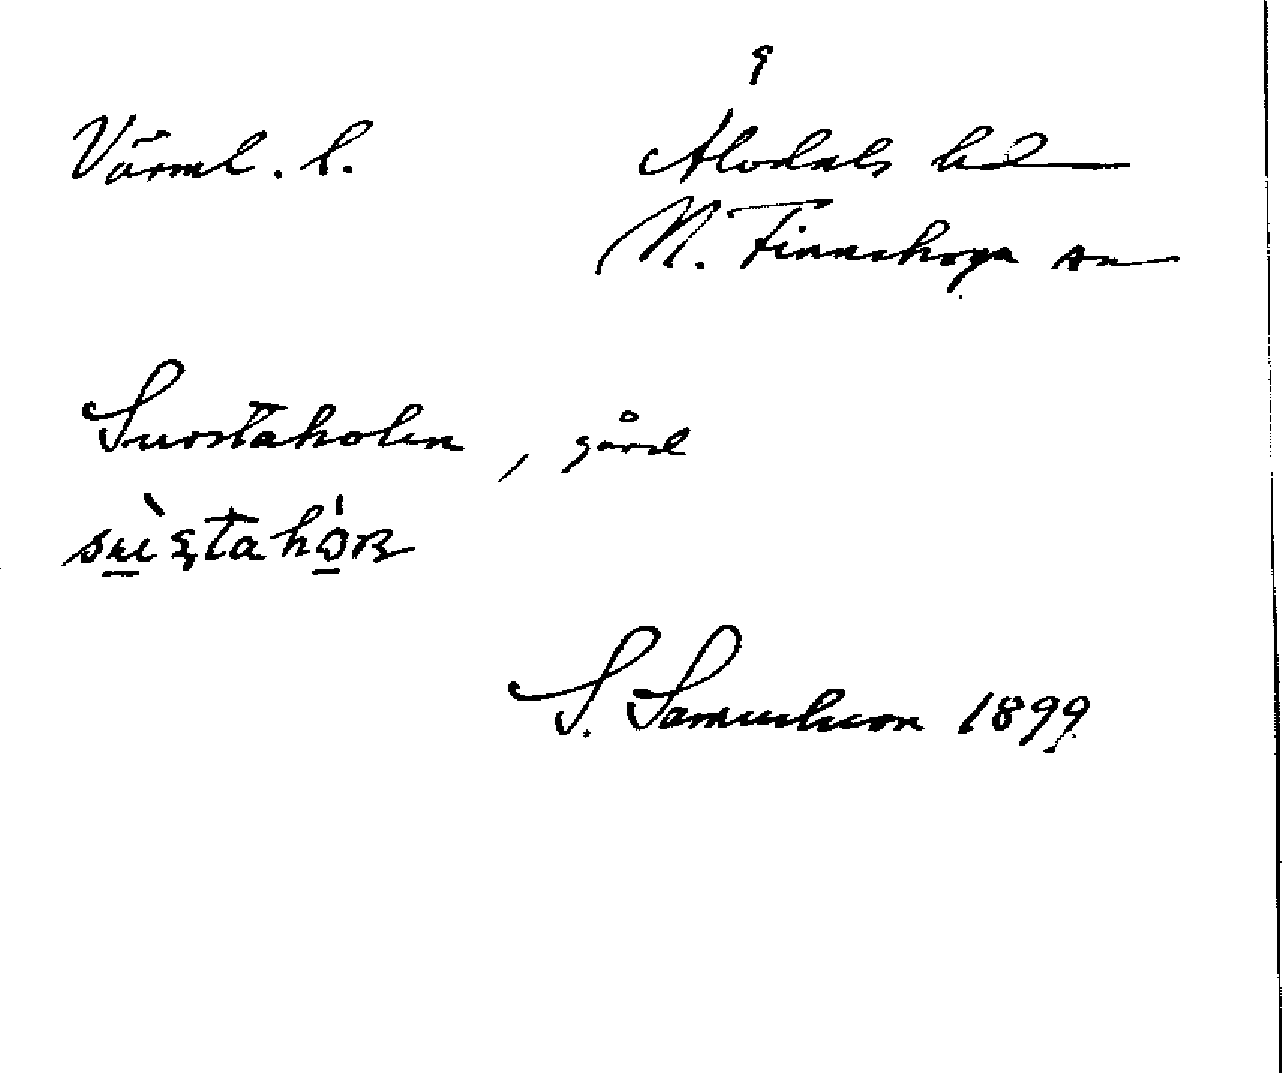 9
Värml. l.
Älvdals hd
N. Finnskoga sn
Suostaholen, gård
S. Samuelsson 1899